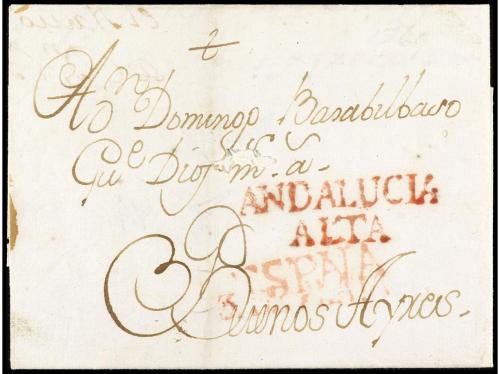 +
A Dn Domingo Basabilbaso
Gue Dios ms as
ANDALUCIA
ALTA
ESPAÑA
Buenos Ayres.